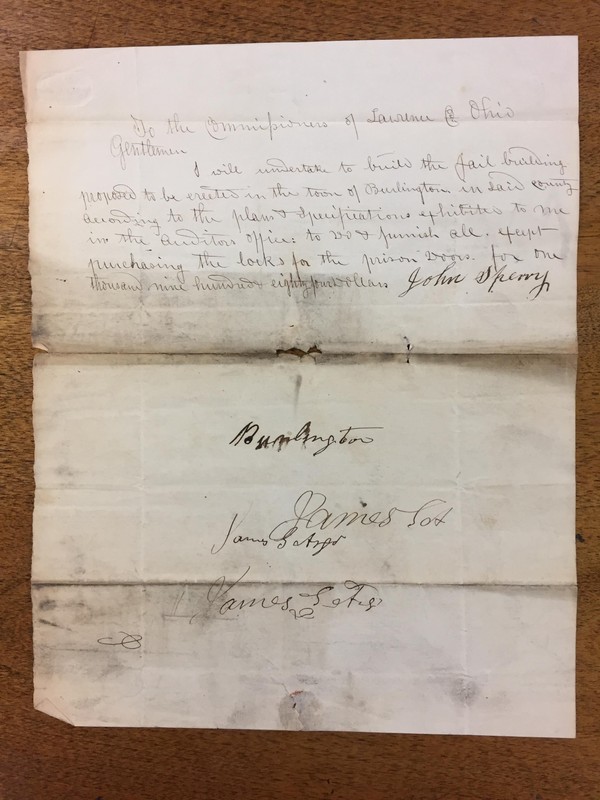 To the Commissioners of Lawrence Co Ohio
Gentlemen
I will undertake to build the Jail building
proposed to be erected in the town of Burlington in said County
according to the plan & specifications exhibited to me
in the auditors office: to do & furnish all. except
purchasing the locks for the prison doors. for one
thousand nine hundred eighty four dollars John Sperry
Burlington
James
James
James